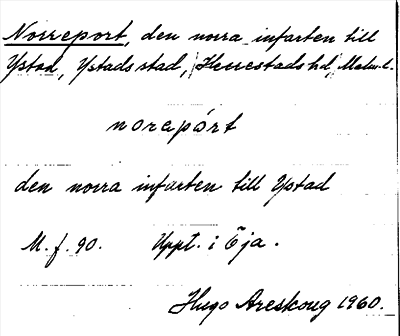 Norreport, den norra infarten till
Ystad, Ystads stad, Herrestads hd, Malm.l.
norapórt
den norra infarten till Ystad
M. f. 90. Uppt. i Öja.
Hugo Areskoug 1960.